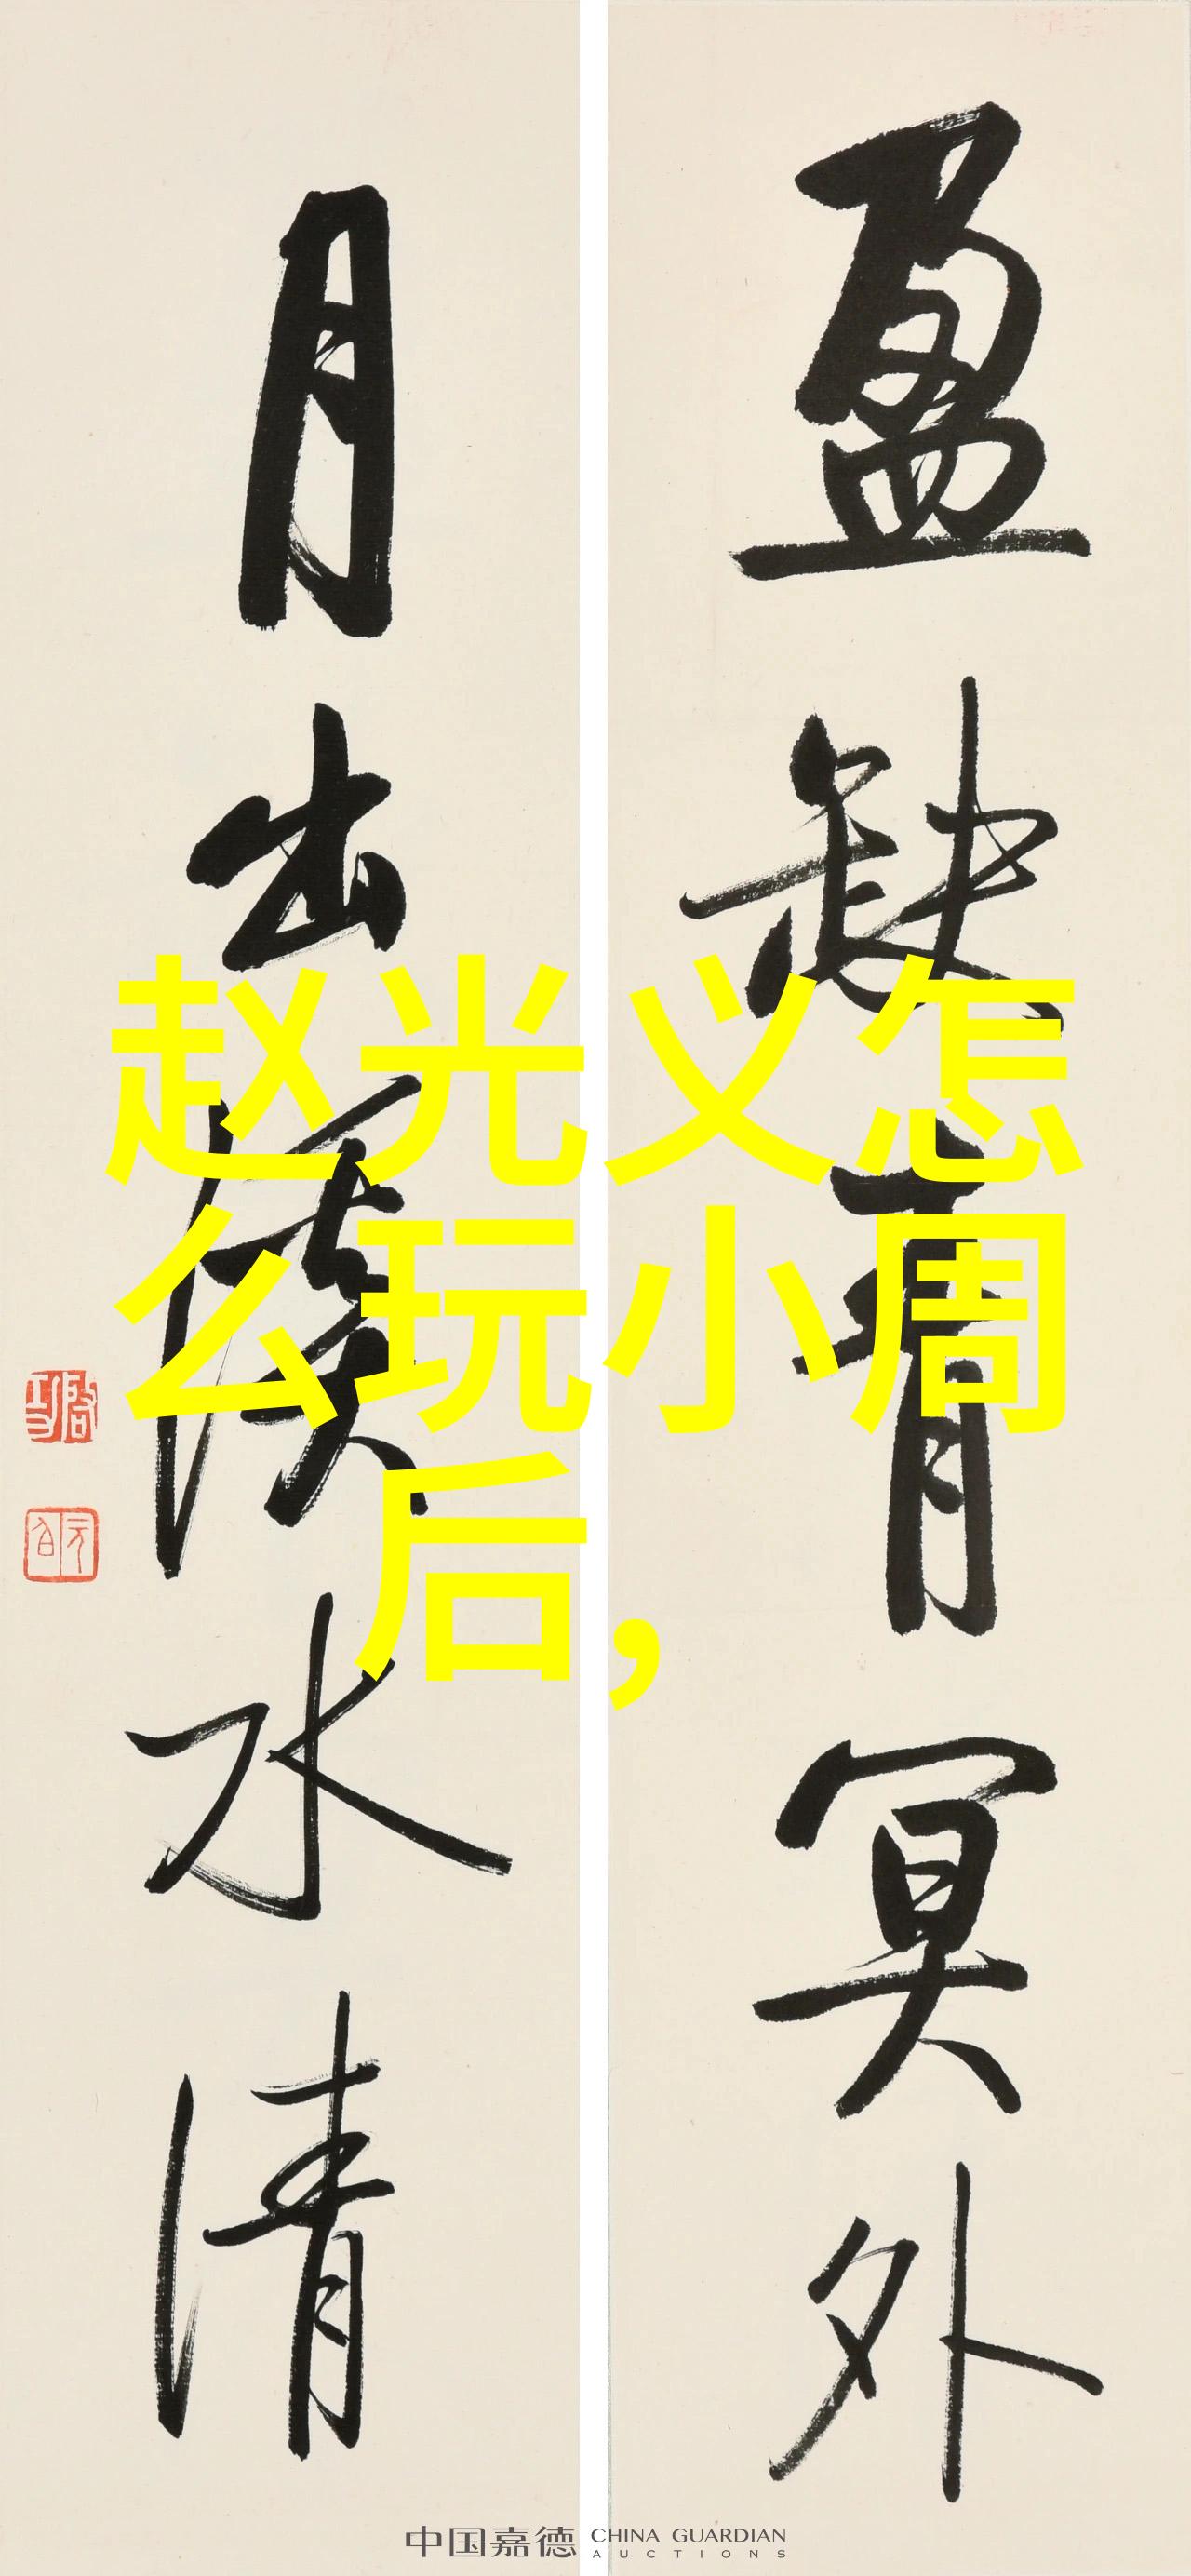 盈缺青冥外
月出溪水清
赵光义怎
么玩小周
后,
启功
元白
中国嘉德 CHINA GUARDIAN
AUCTIONS